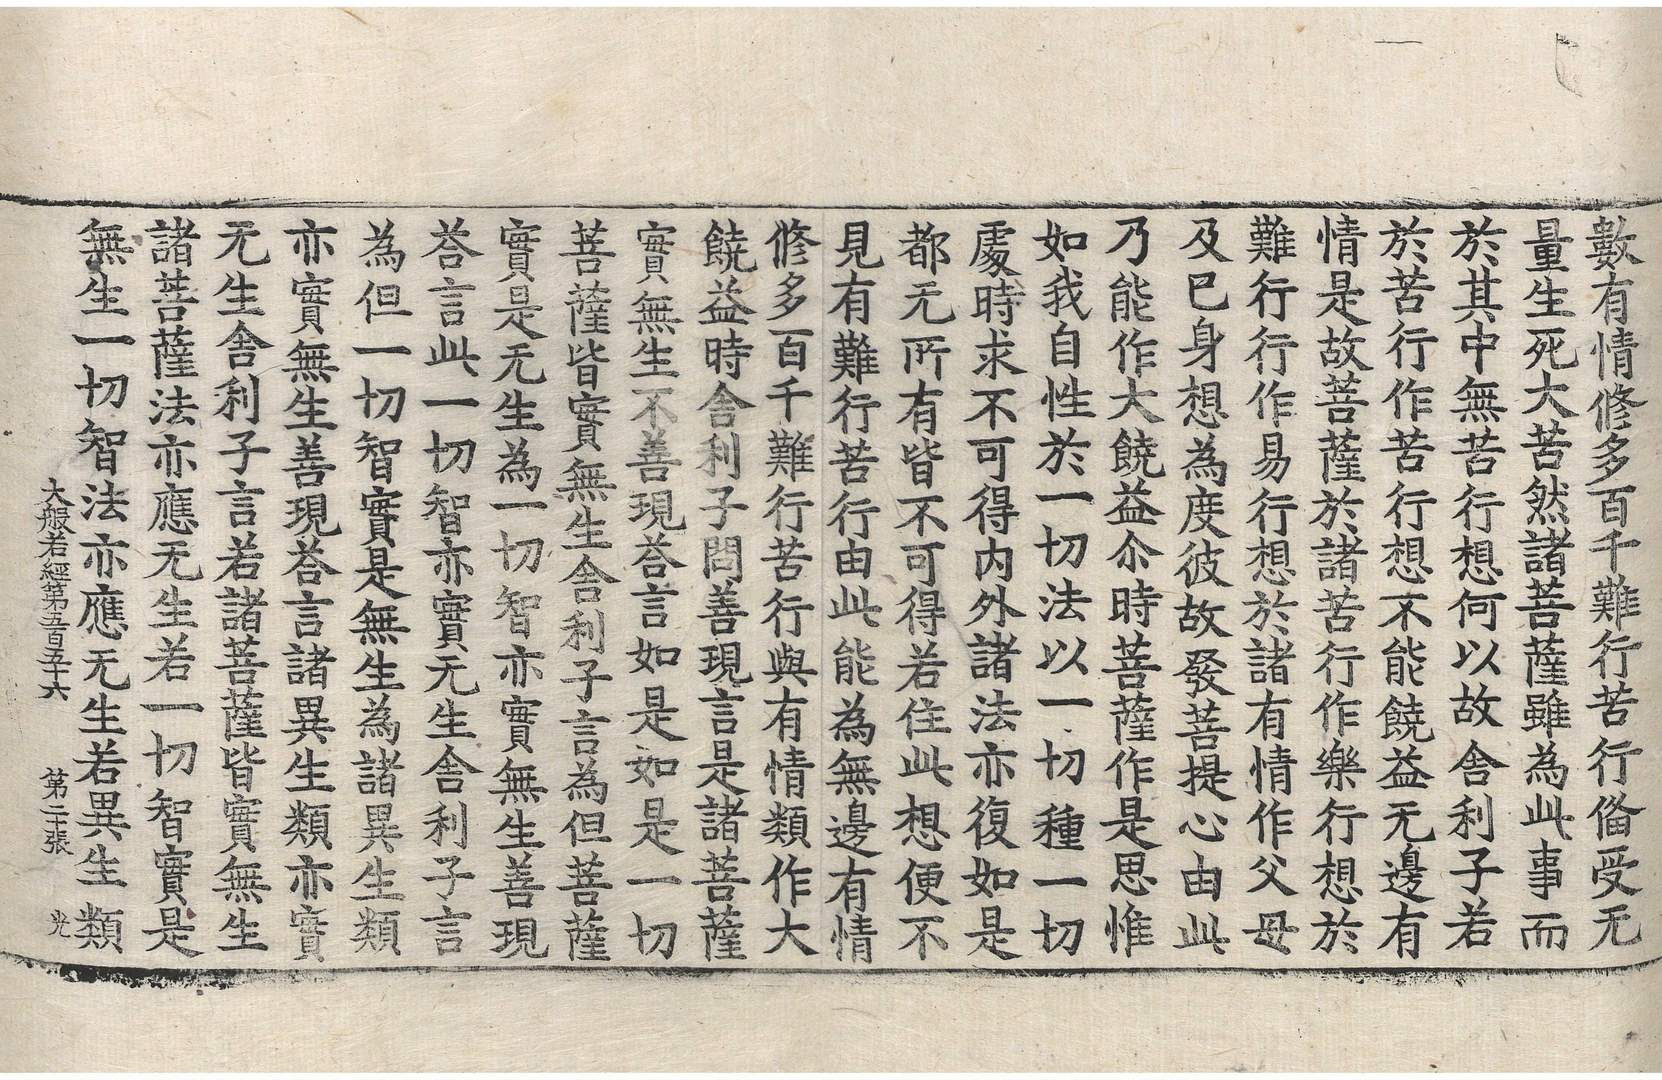 數有情修多百千難行苦行俻受无
量生死大苦然諸菩薩雖為此事而
於其中無苦行想何以故舍利子若
於苦行作苦行想不能饒益无邊有
情是故菩薩於諸苦行作樂行想於
難行行作易行想於諸有情作父母
及已身想為度彼故發菩提心由此
乃能作大饒益尒時菩薩作是思惟
如我自性於一切法以一切種一切
處時求不可得内外諸法亦復如是
都无所有皆不可得若住此想便不
見有難行苦行由此能為無邊有情
修多百千難行苦行與有情類作大
饒益時舍利子問善現言是諸菩薩
實無生不善現荅言如是如是一切
菩薩皆實無生舍利子言為但菩薩
實是无生為一切智亦實無生善現
荅言此一切智亦實无生舍利子言
為但一切智實是無生為諸異生類
亦實無生善現荅言諸異生類亦實
无生舍利子言若諸菩薩皆實無生
諸菩薩法亦應无生若一切智實是
無生一切智法亦應无生若異生類
大般若經第五百五十六 第二十張 光